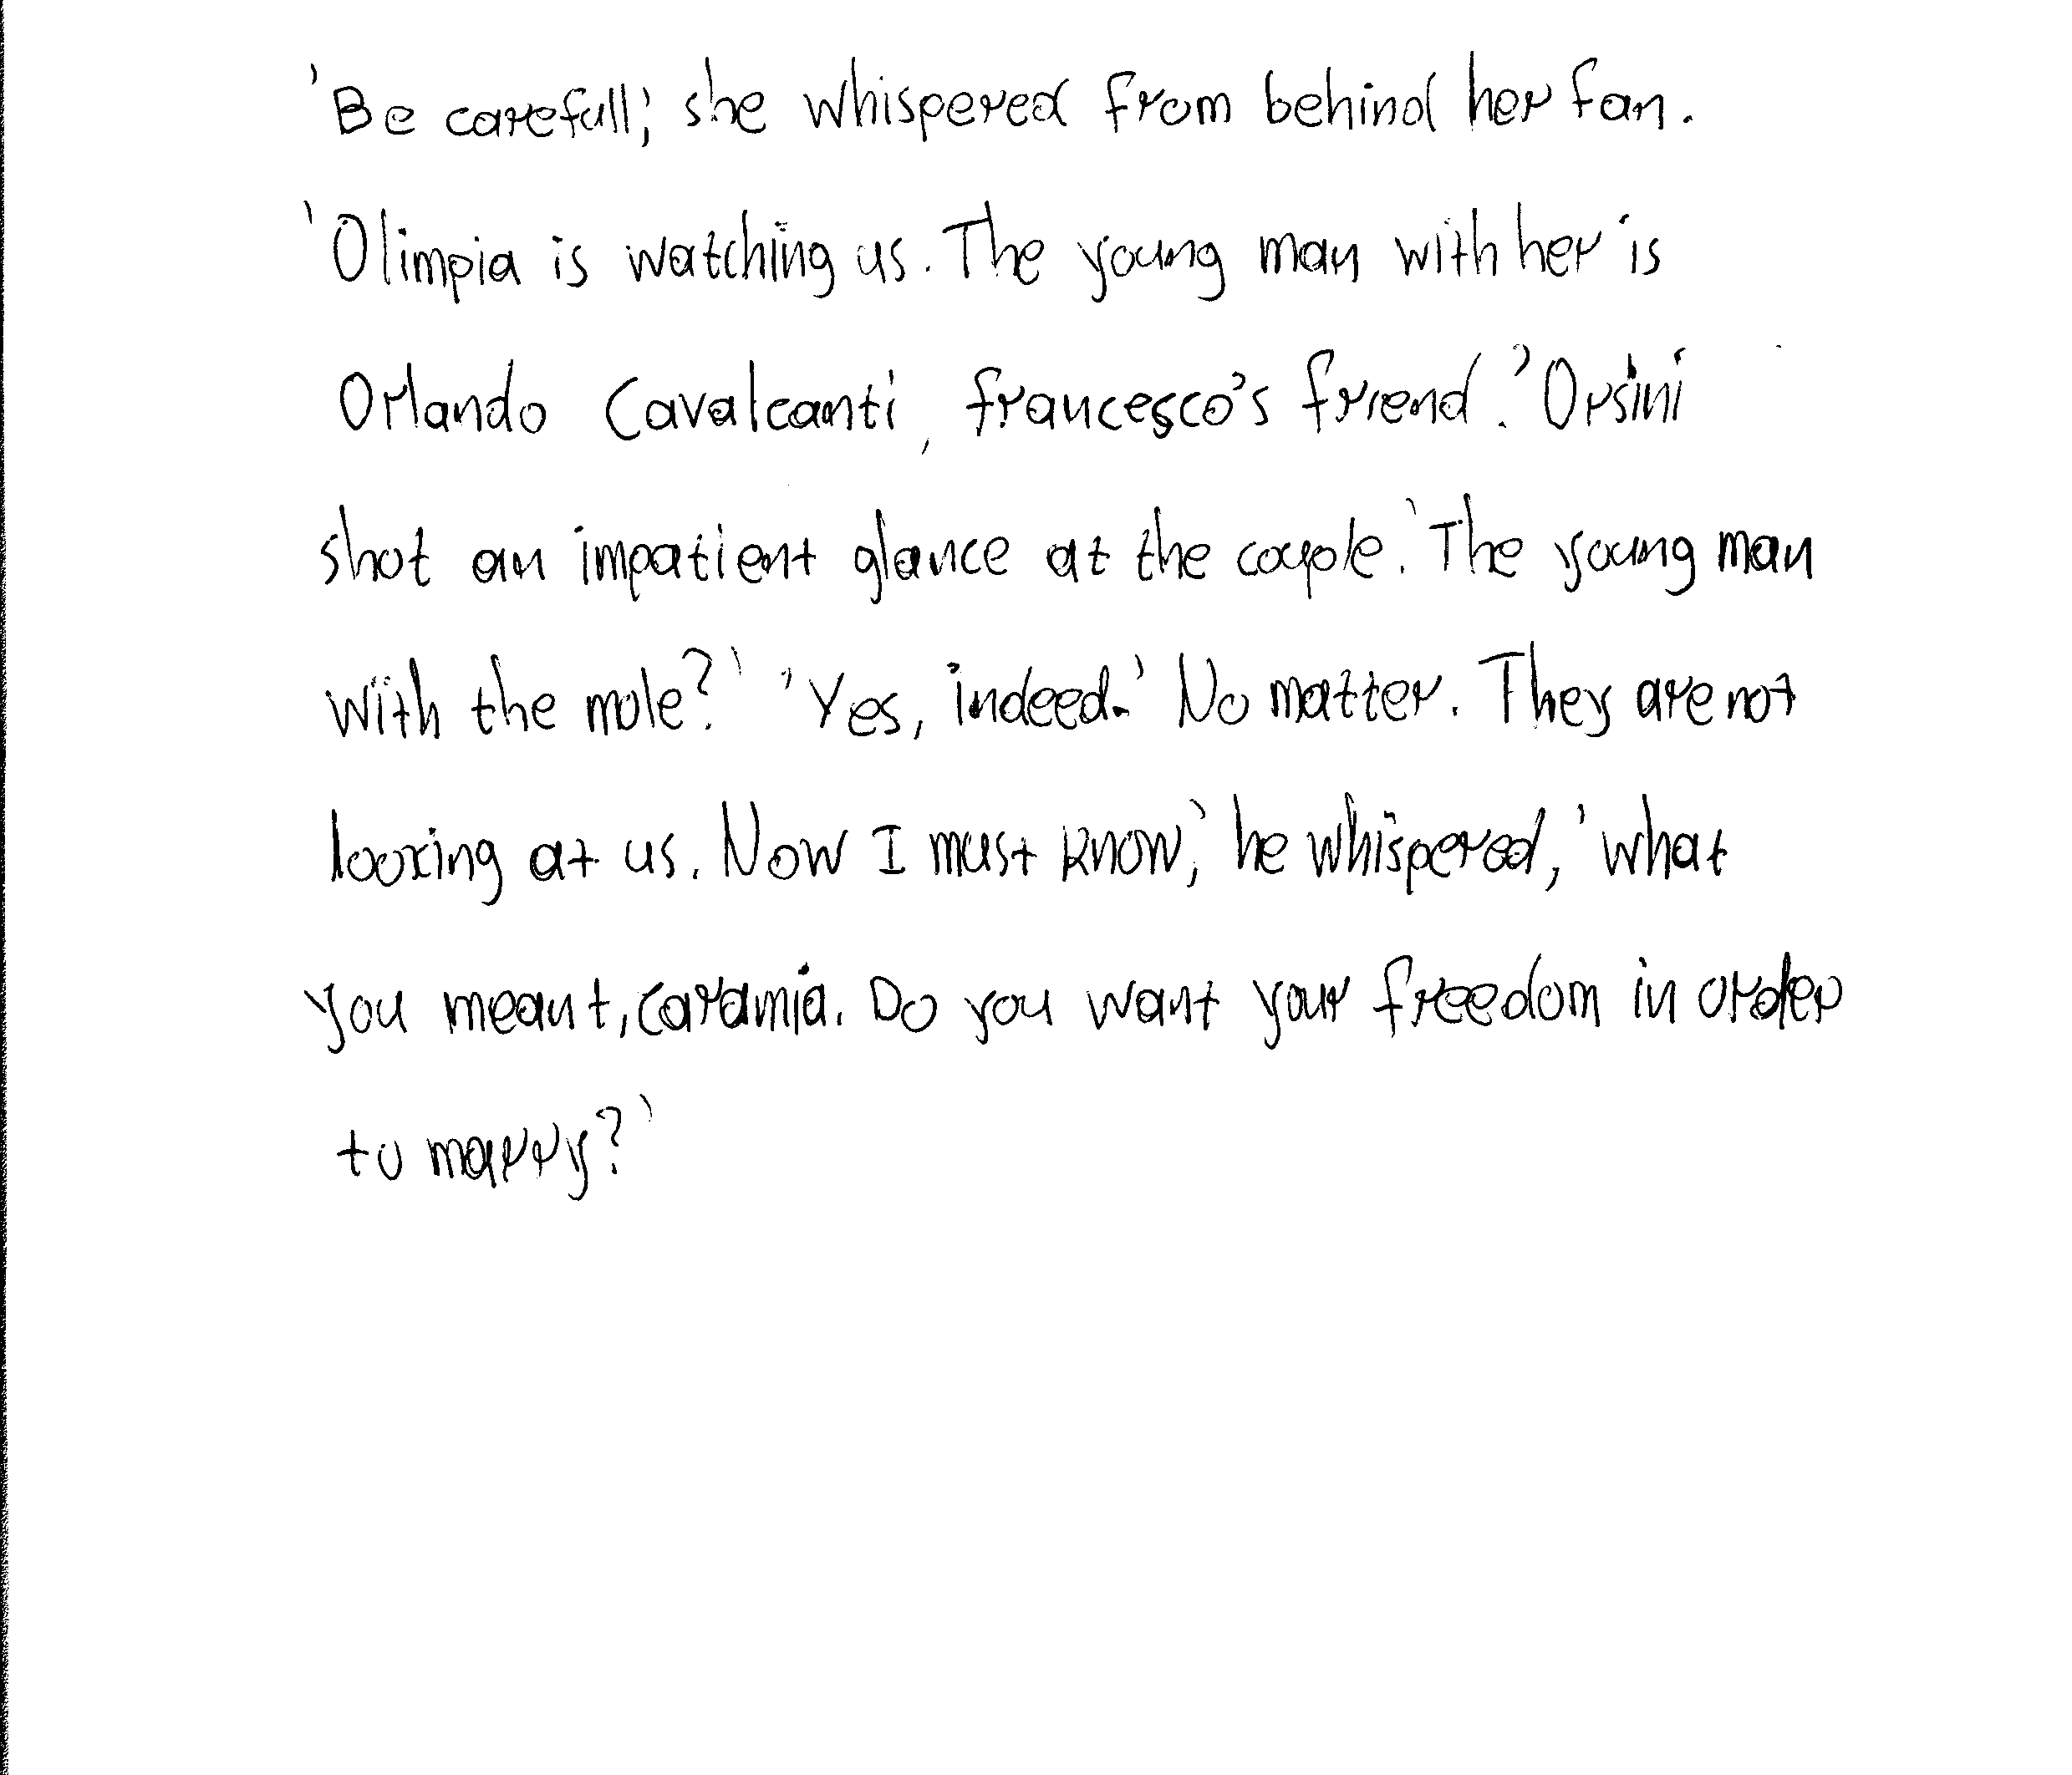 'Be carefull,' she whispered from behind her fan.
'Olimpia is watching us. The young man with her is
Orlando Cavalcanti, francesco's friend.' Orsini
shot an impatient glance at the couple. 'The young man
with the mole?' 'Yes, indeed.' No matter. They are not
looking at us. Now I must know,' he whispered, 'what
you meant, cara mia. Do you want your freedom in order
to marry?'